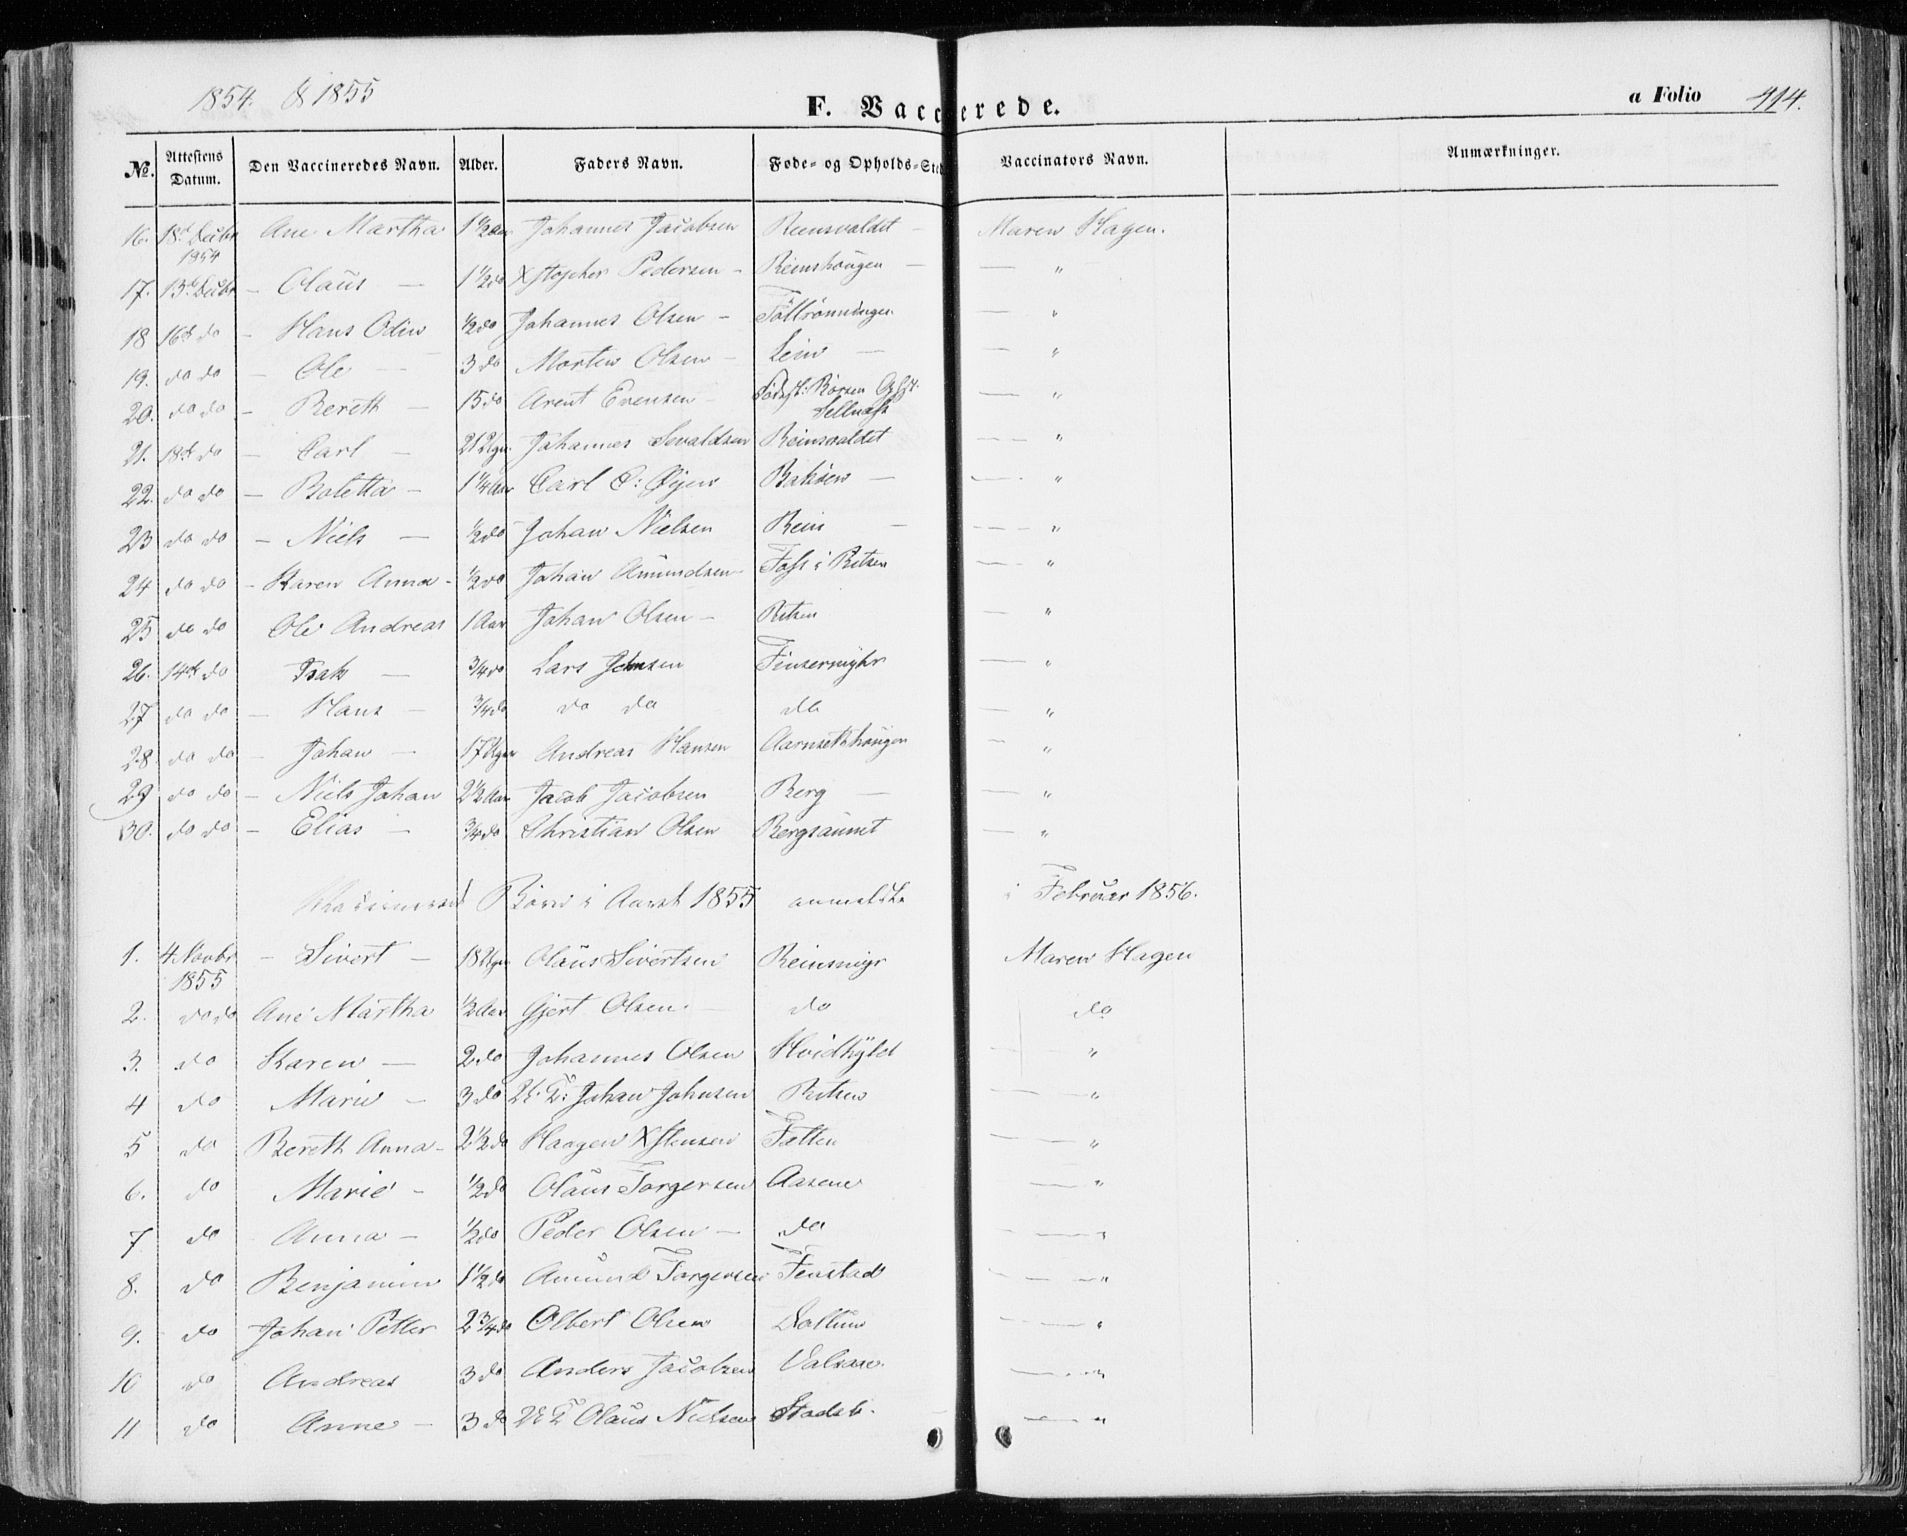 1854. & 1855
F. Vaccinerede.
a Folio 414.
No. Attestens Datum. Den Vaccineredes Navn. Alder. Faders Navn. Føde- og Opholds-Sted Vaccinators Navn. Anmærkninger.
16. 18d Decbr 1854 Ane Martha 1 1/2 Aar Johannes Jacobsen Reinsvaldet - Maren Hagen.
17. 13d Decbr - Olaus - 1 1/2 do Xstopher Pedersen - Reinshougen - — "
18 16d do - Hans Odin 1/2 do Johannes Olsen - — "
19. do do - Ole - 3 do Morten Olsen - Lein - — "
20. do do - Bereth - 15 do Arent Evensen - Fødest: Børsen — "
21. 18d do - Carl - 21 Ugr Johannes Sivaldsen Reinsvaldet — "
22. do do - Boletta - 1 1/4 Aar Carl C: Øyen — "
23 do do - Niels - 1/2 do Johan Nielsen Rein - — "
24 do do - Karen Anna - 1/2 do Johan Amundsen Foss i Ritsen — "
25 do do Ole Andreas 1 Aar Johan Olsen - Ritsen — "
26. 14d do Isak - 3/4 do Lars Jensen — "
27 do do - Hans - 3/4 do do do do — "
28. do do - Johan - 17 Ugr Andreas Hansen Aarnsethhougen — "
29 do do - Niels Johan 2 1/2 Aar Jacob Jacobsen Berg - — "
30. do do - Elias - 3/4 do Christian Olsen Bergsaunet — "
Vaccinered Børn i Aaret 1855 anmeldte i Februar 1856.
1. 4 Novbr 1855 - Sivert - 18 Ugr Olaus Sivertsen Reinsmyr Maren Hagen
2. do do Ane Martha 1/2 Aar Gjert Olsen - do do
3. do Karen - 2 do Johannes Olsen Hvidhyld — "
4 do Marie - 3 do Johan Johnsen Ritsen — "
5 do Bereth Anna - 2 1/2 do Haagen Xstensen Fætten — "
6. do Marie - 1/2 do Olaus Torgersen Aasene — "
7 do Anna - 1/2 do Peder Olsen - do — "
8. do Benjamin 1 1/2 do Amund Torgersen Fenstad — "
9. do Johan Petter 2 3/4 do Olbert Olsen — "
10 do Andreas 3 do Anders Jacobsen — "
11 do Anne - 3 do Olaus Nielsen — "